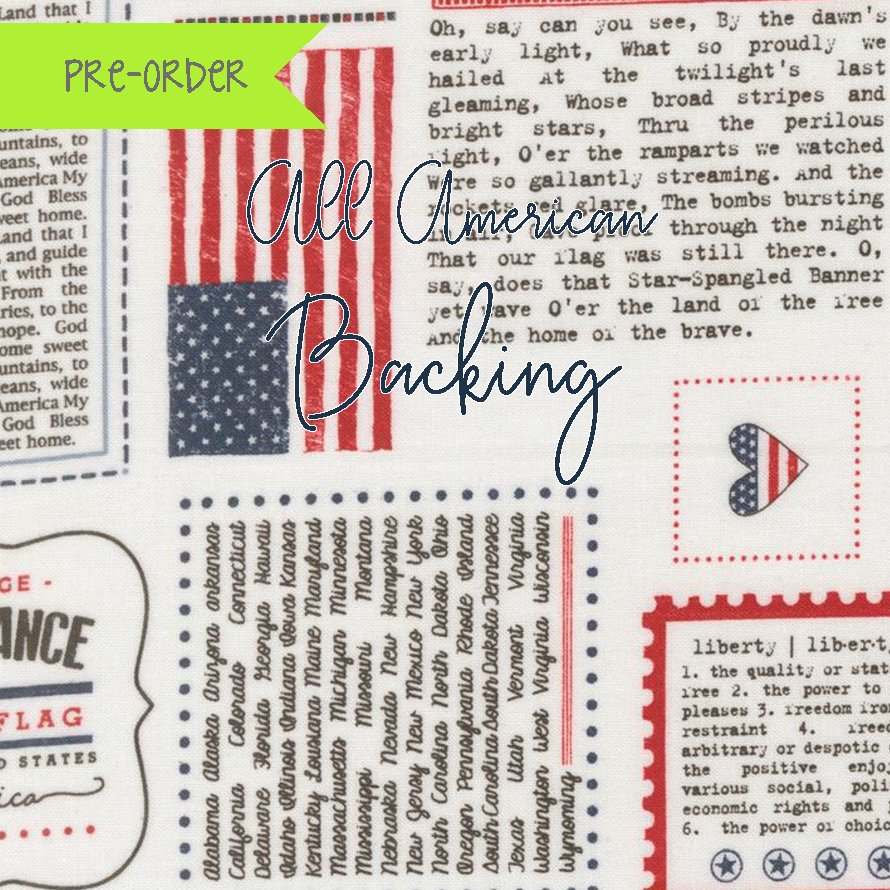 PRE-ORDER
All American
Backing
Land that I
untains, to
eans, wide
America My
God Bless
weet home.
Land that I
, and guide
t with the
From the
ries, to the
hope. God
ome sweet
untains, to
eans, wide
America My
God Bless
eet home.
Oh, say can you see, By the dawn's
early light, What so proudly we
hailed at the twilight's last
gleaming, Whose broad stripes and
bright stars, Thru the perilous
O'er the ramparts we watched
so gallantly streaming. And the
red glare, The bombs bursting
through the night
That our flag was still there. O,
say, does that Star-Spangled Banner
yet wave O'er the land of the free
And the home of the brave.
GE -
ANCE
FLAG
D STATES
ica
Alabama Alaska Arizona arkansas
California Colorado Connecticut
Delaware Florida Georgia Hawaii
Idaho Illinois Indiana Iowa Kansas
Kentucky Louisiana Maine Maryland
Massachusetts Michigan Minnesota
Mississippi Missouri Montana
Nebraska Nevada New Hampshire
New Jersey New Mexico New York
North Carolina North Dakota Ohio
Oregon Pennsylvania Rhode Island
South Carolina South Dakota Tennessee
Texas Utah Vermont Virginia
Washington West Virginia Wisconsin
Wyoming
liberty | lib·er·t
1. the quality or stat
free 2. the power to
pleases 3. freedom from
restraint 4. free
arbitrary or despotic
the positive enjo
various social, poli
economic rights and
6. the power of choic